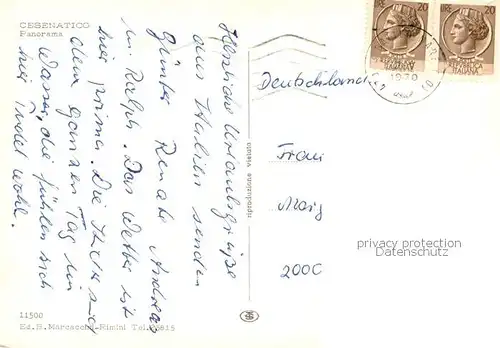 CESENATICO
Panorama
Herzliche Urlaubsgrüße
aus Italien senden
Günter Renate Andreas
u. Ralph. Das Wetter ist
hier prima. Die
den ganzen Tag im
Wasser, die fühlen sich
hier wohl.
11500
Ed. B. Marcacchi-Rimini Tel. 26815
riproduzione vietata
Deutschland
Frau
2000
LIRE 20
ITALIANA
1970
privacy protection
DATENSCHUTZ